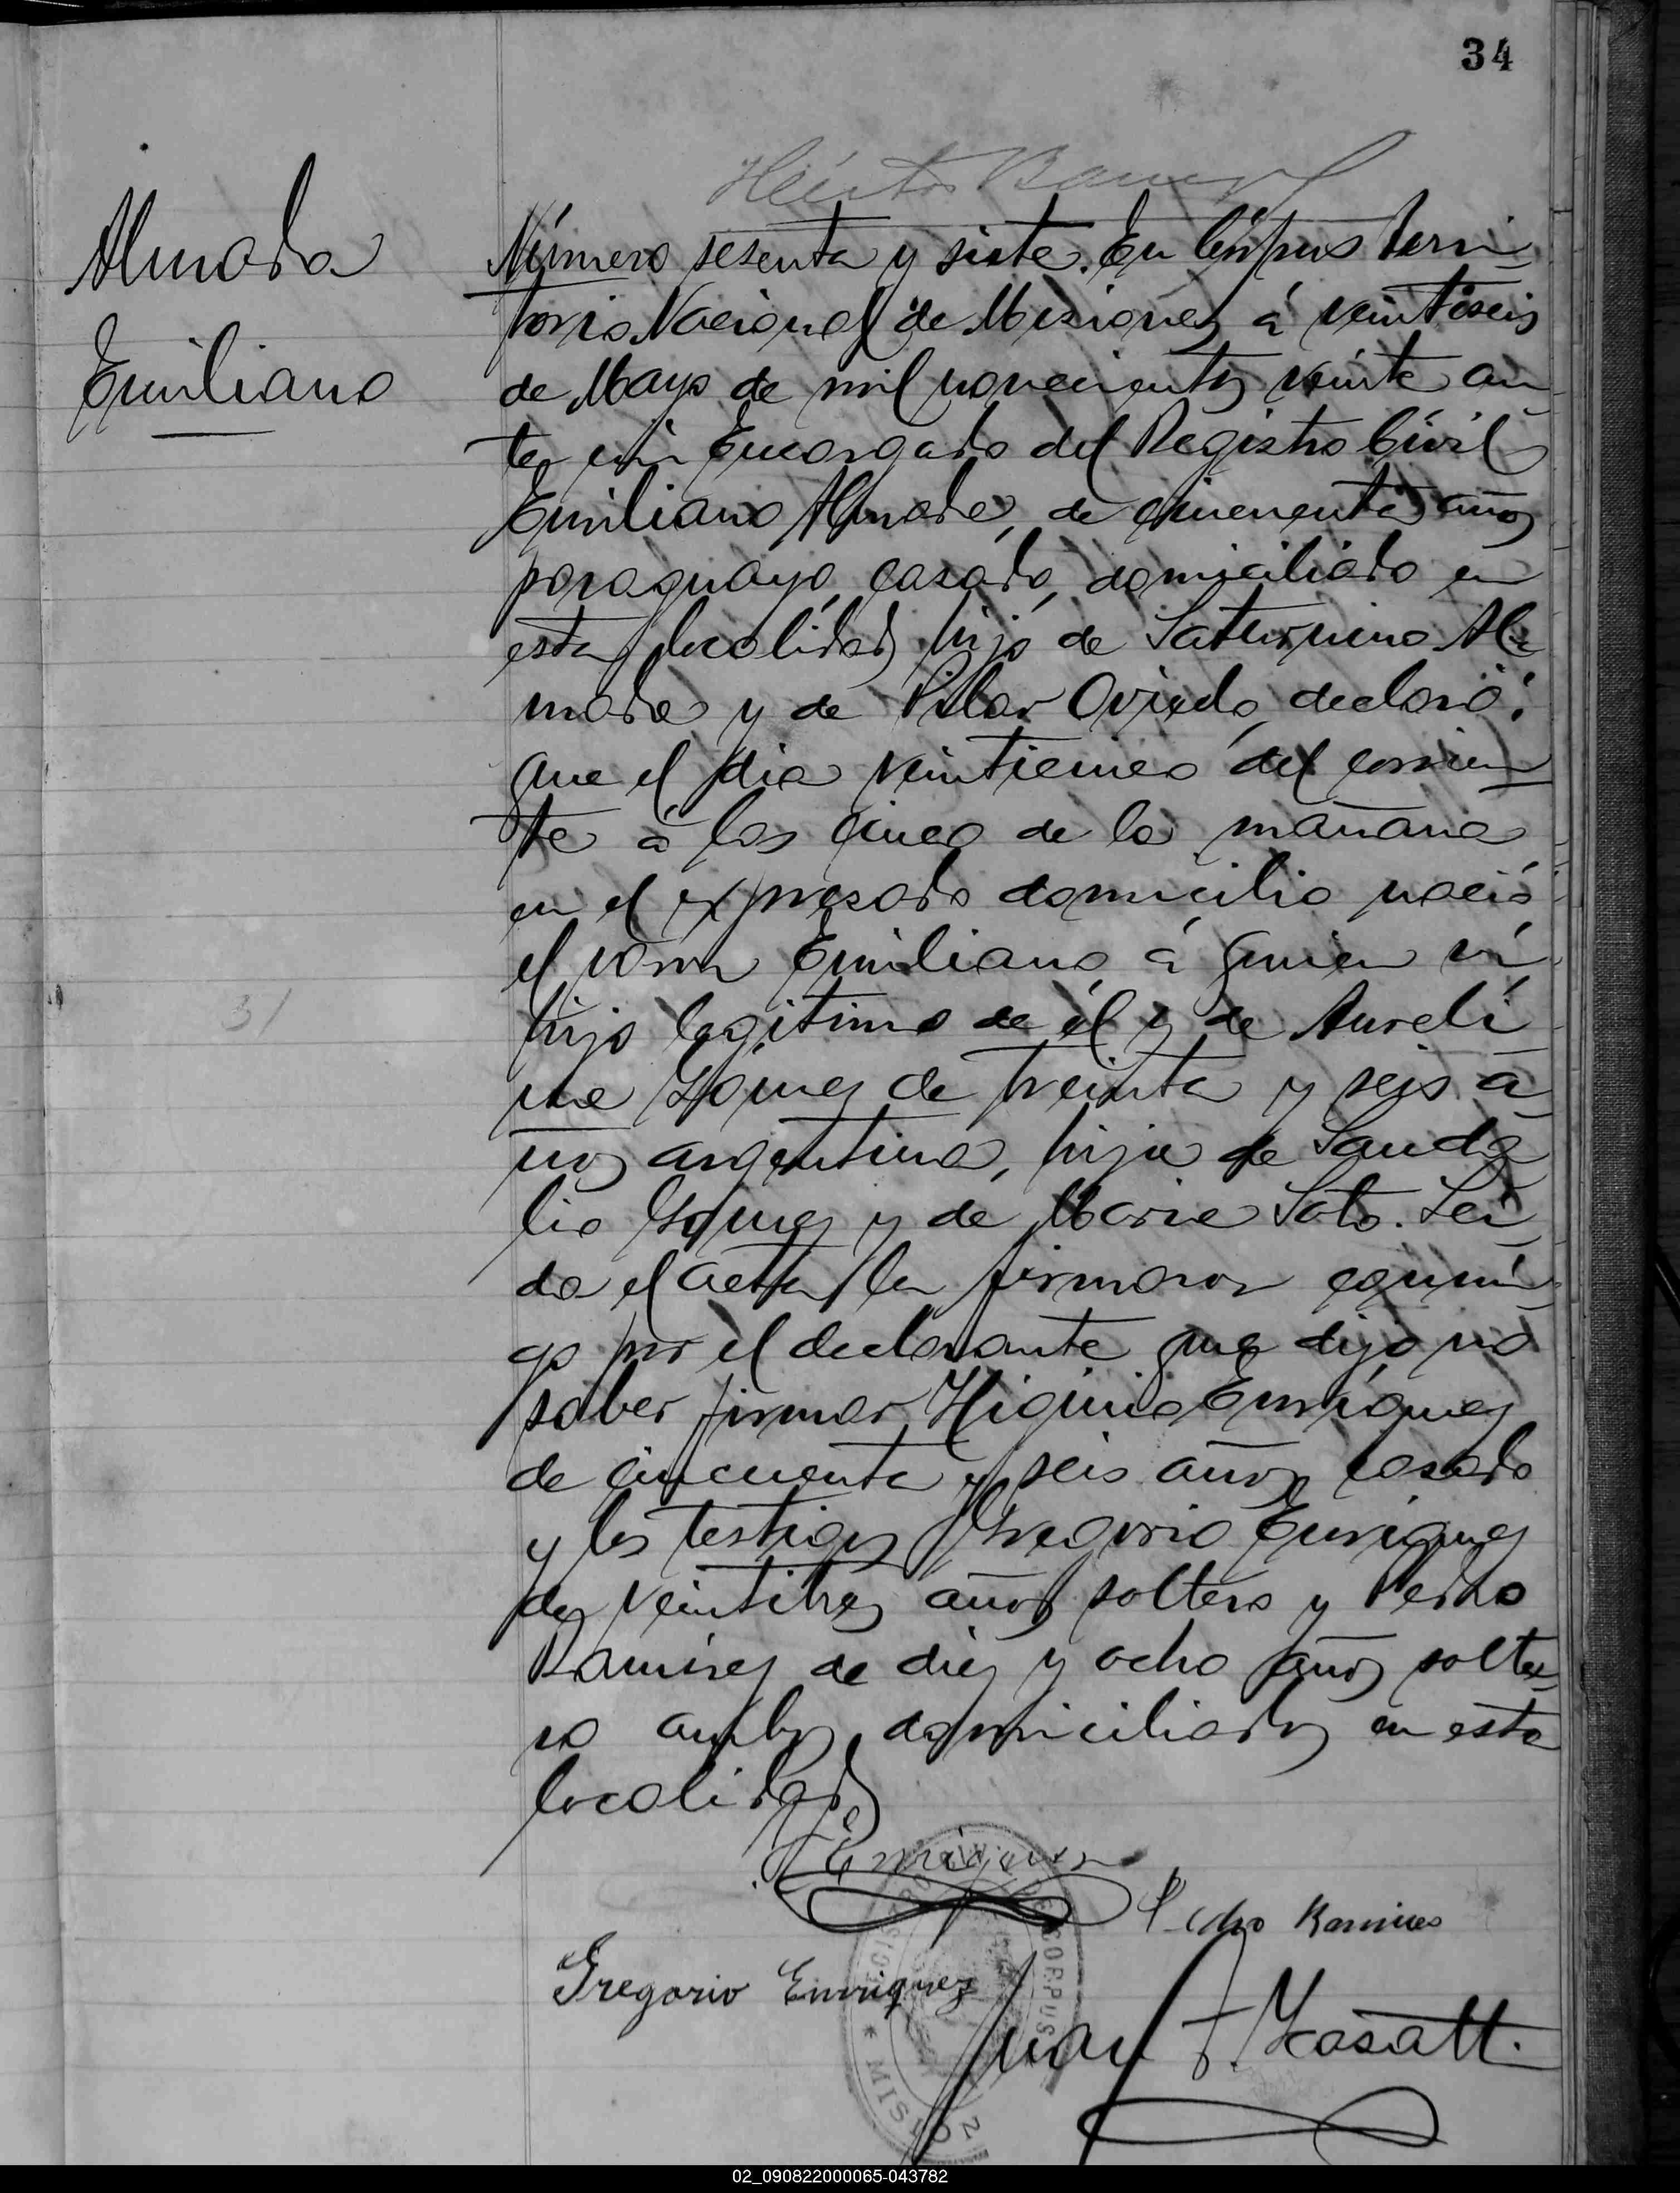 34
Almada
Emiliano
31
Número sesenta y siete. En Córpus Terri-
torio Nacional de Misiones á veintiseis
de Mayo de mil novecientos veinte an-
te mi Encargado del Registro Civil
Emiliano Almada, de cincuenta años
paraguayo, casado, domiciliado en
esta localidad, hijo de Saturnino Al-
mada y de Pilar Oviedo, declaró:
que el dia veinticinco del corrien-
te á las cinco de la mañana
en el expresado domicilio nació
el varon Emiliano á quien ví
hijo legitimo de él y de Aureli-
na Gomez de treinta y seis a-
ños argentina, hija de Sanda-
lio Gomez y de Maria Soto. Lei-
da el acta la firmaron conmi-
go por el declarante que dijo no
saber firmar Higinio Enriquez
de cincuenta y seis años casado
y los testigos Gregorio Enriquez
de veintitres años soltero y Pedro
Ramirez de diez y ocho años solte-
ro ambos domiciliados en esta
localidad
H Enriquez
Pedro Ramires
Gregorio Enriquez
Juan
REGISTRO CIVIL CORPUS * MISIONES
02_090822000065-043782